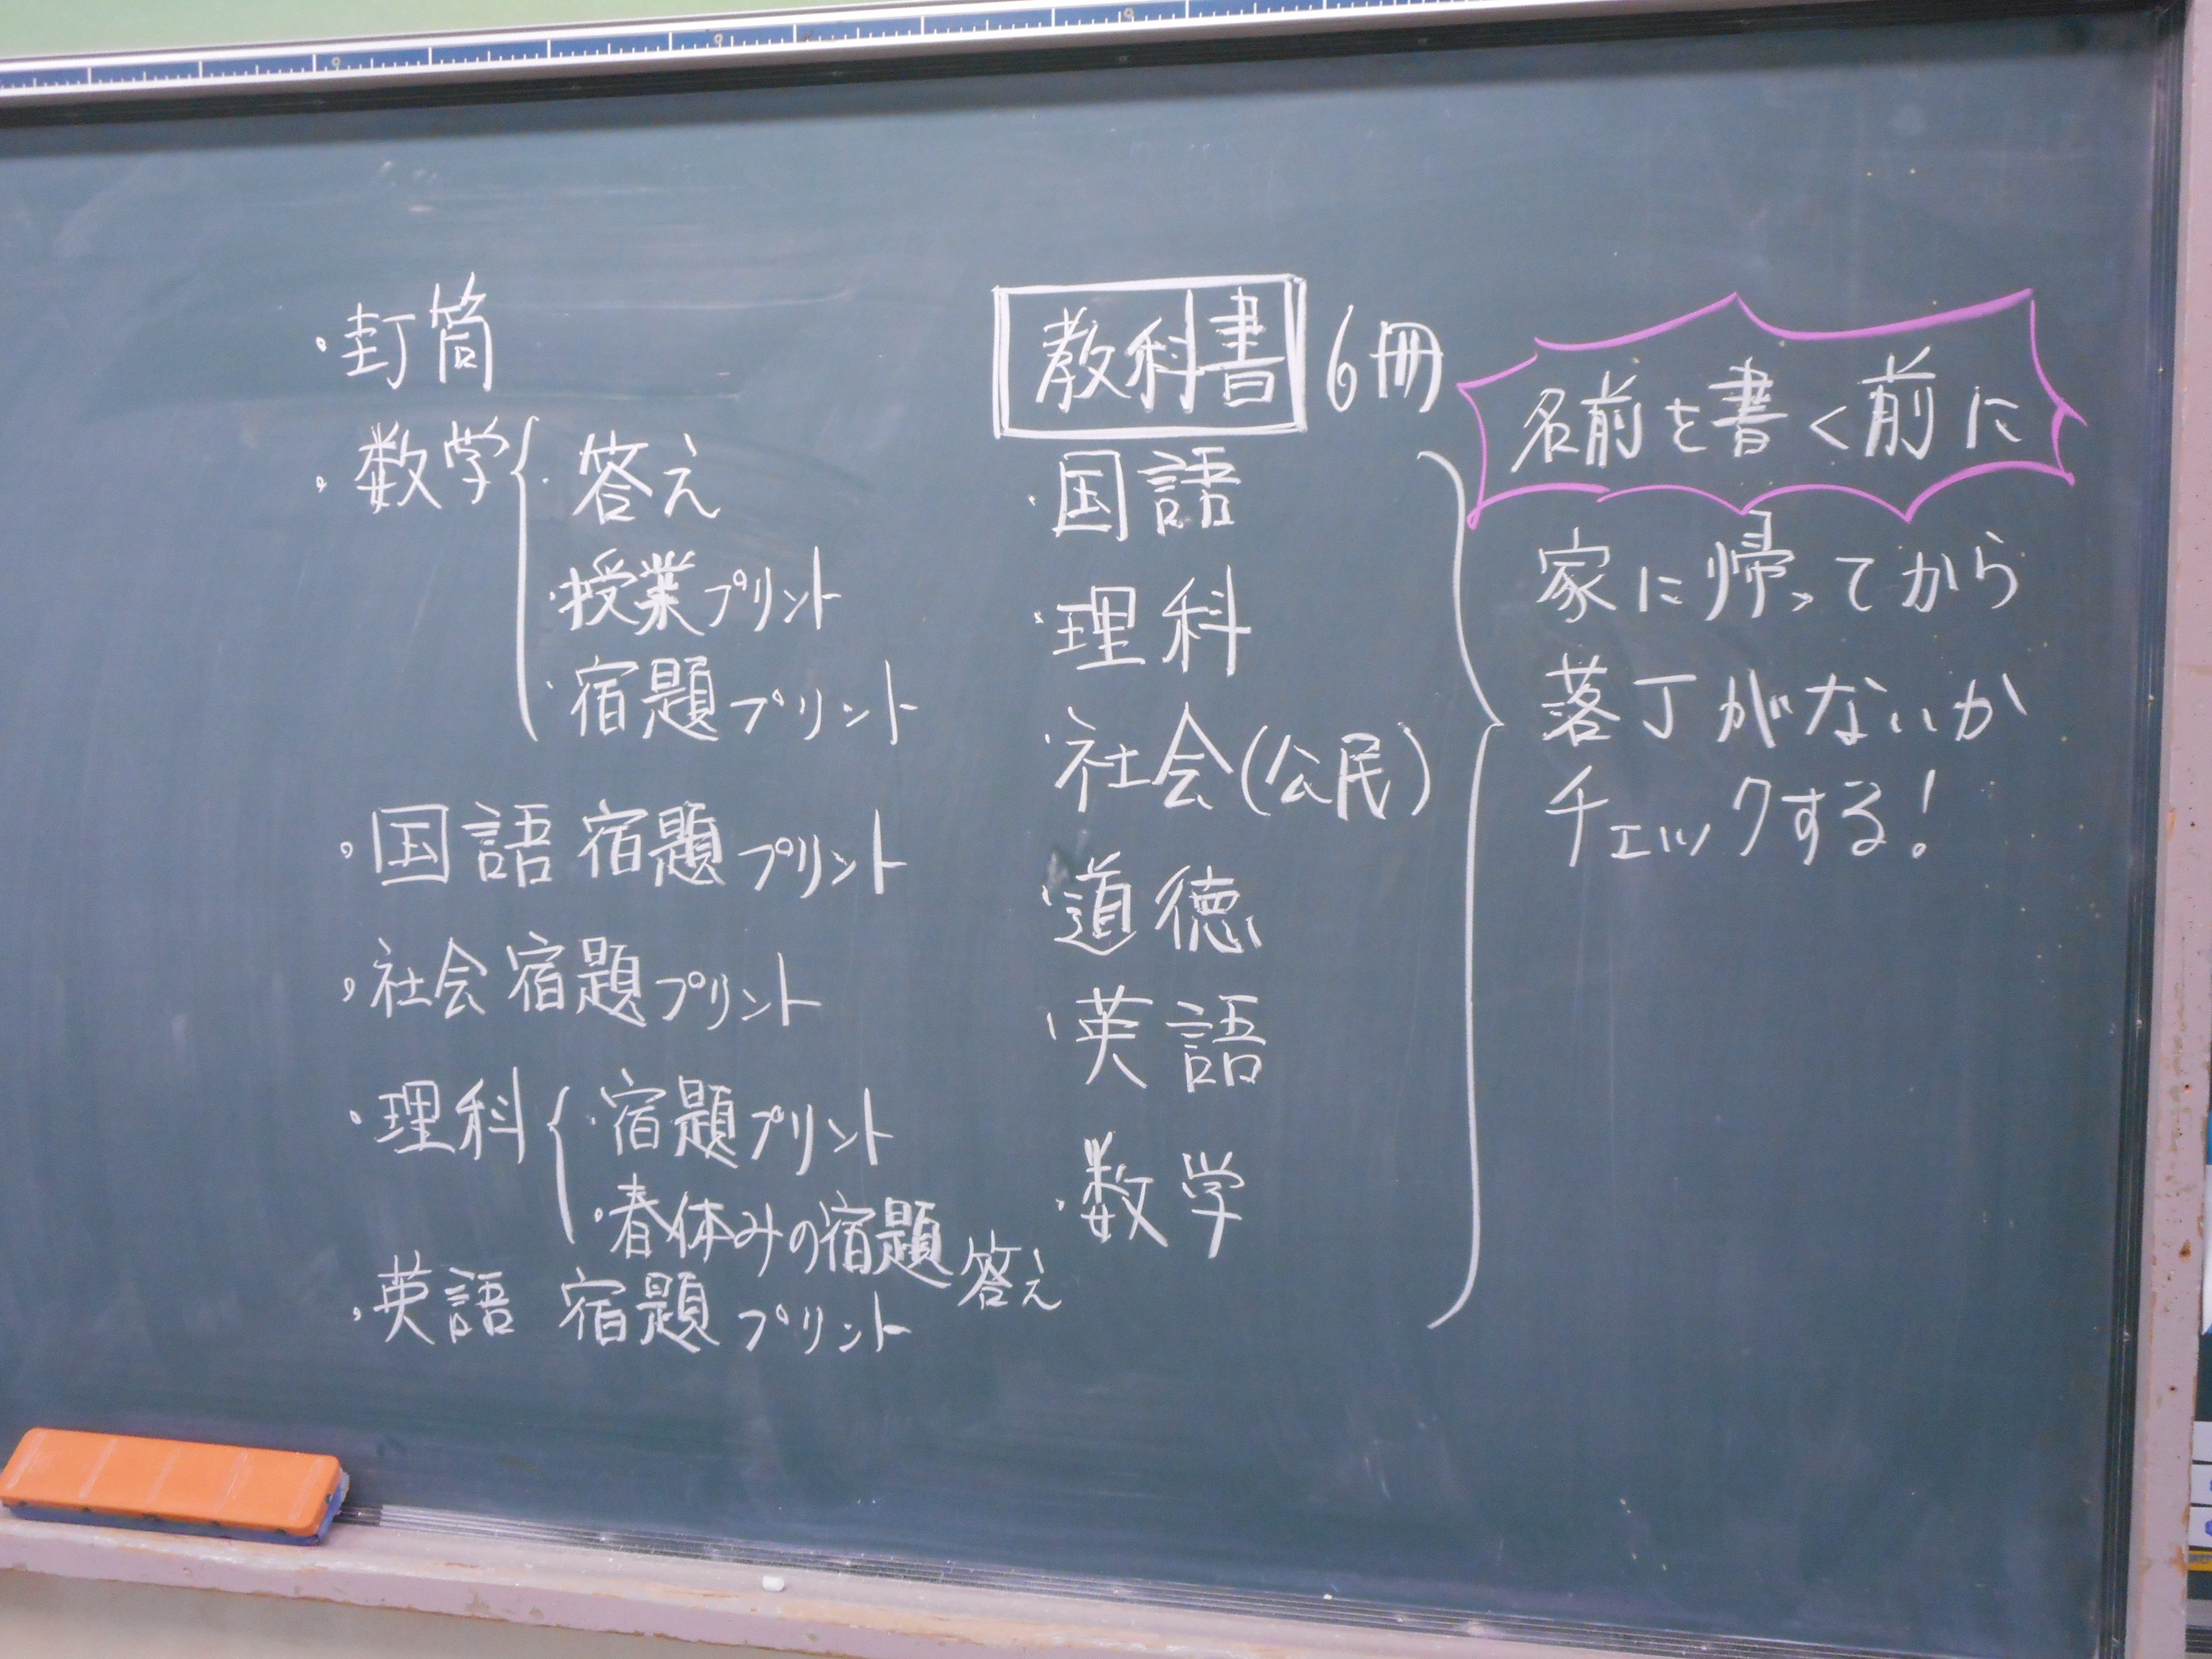 ・封筒
・数学
・答え
・授業プリント
・宿題プリント
・国語 宿題プリント
・社会 宿題プリント
・理科
・宿題プリント
・春休みの宿題 答え
・英語 宿題プリント
教科書 6冊
・国語
・理科
・社会(公民)
・道徳
・英語
・数学
名前を書く前に
家に帰ってから
落丁がないか
チェックする!